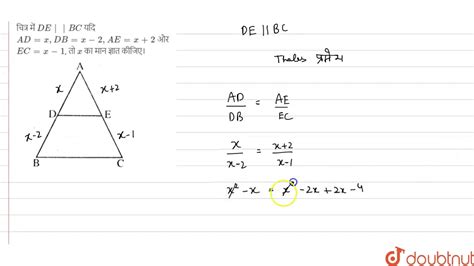 चित्र में DE || BC यदि
AD = x, DB = x − 2, AE = x + 2 ओर
EC = x − 1, तो x का मान ज्ञात कीजिए।
A
x
x+2
D
E
x-2
x-1
B
C
DE || BC
Thales प्रमेय
AD/DB = AE/EC
x/x-2 = (x+2)/x-1
x² - x = x² - 2x + 2x - 4
doubtnut